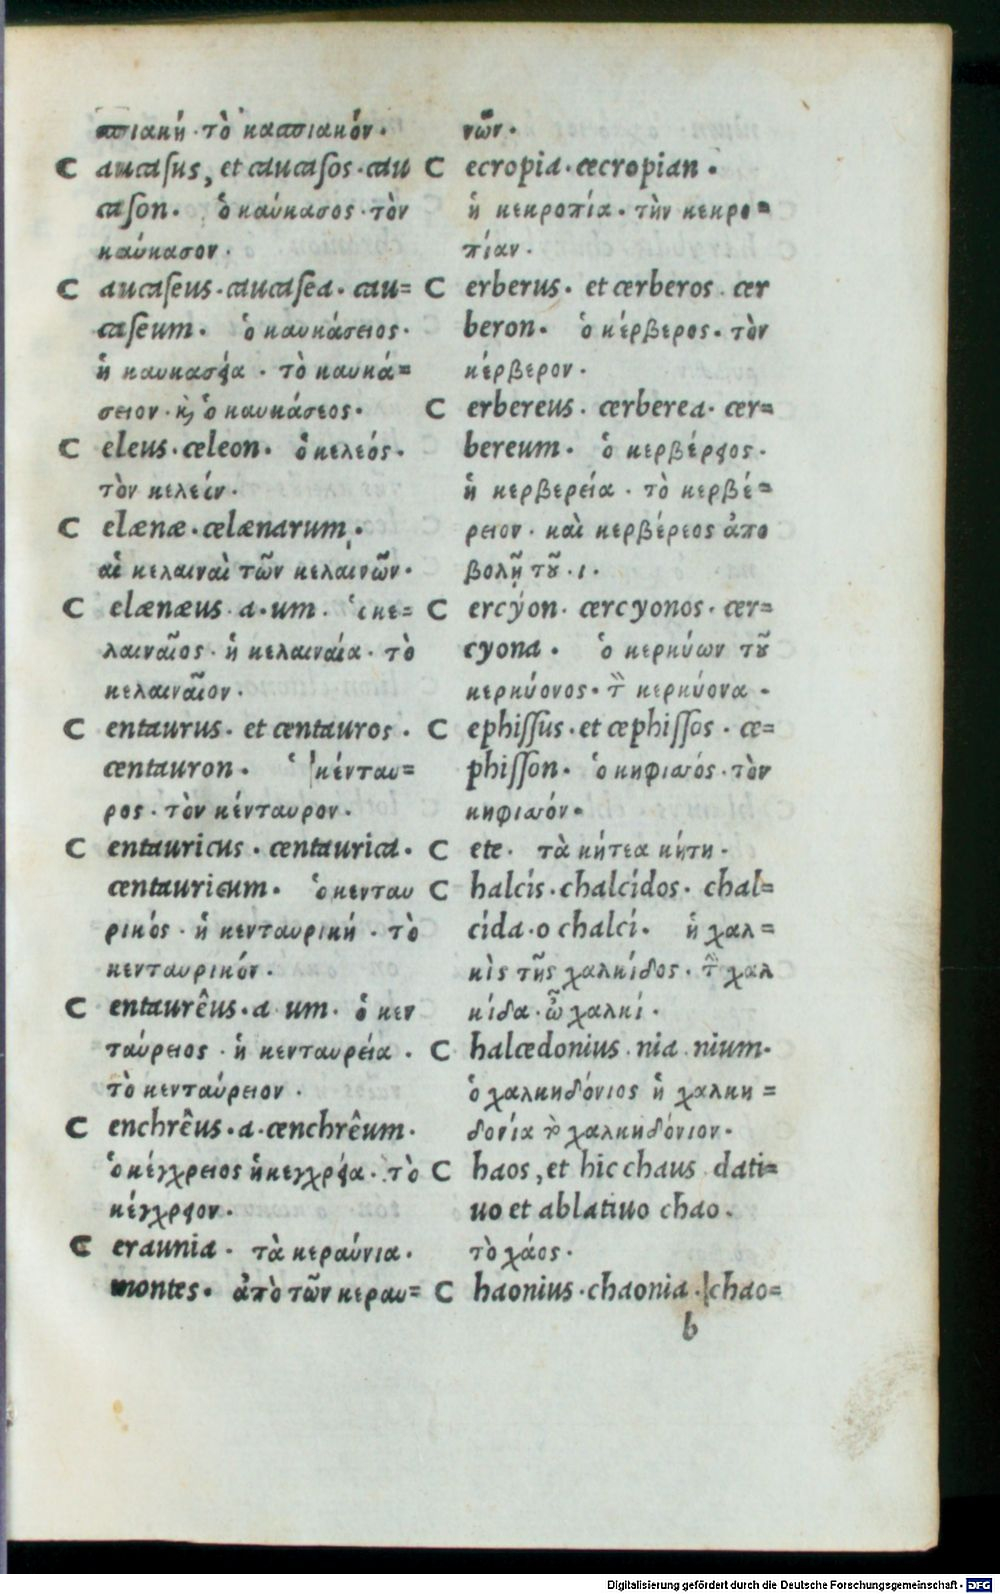 σπιακή· τὸ κασπιακόν·
C aucasus, et caucasos·cau
cason· ὁ καύκασος·τὸν
καύκασον·
C aucaseus·caucasea·cau=
caseum· ὁ καυκάσειος·
ἡ καυκασεία· τὸ καυκά=
σειον·καὶ ὁ καυκάσεος·
C eleus·celeon· ὁ κελεός·
τὸν κελεόν·
C elænæ·celænarum·
αἱ κελαιναὶ τῶν κελαινῶν·
C elænæus·a·um· ὁ κε=
λαιναῖος·ἡ κελαιναία·τὸ
κελαιναῖον·
C entaurus·et centauros·
centauron· ὁ κένταυ=
ρος·τὸν κένταυρον·
C entauricus·centaurica·
centauricum· ὁ κενταυ
ρικός·ἡ κενταυρική·τὸ
κενταυρικόν·
C entaurêus·a um· ὁ κεν
ταύρειος·ἡ κενταυρεία·
τὸ κενταύρειον·
C enchrêus·a·cenchrêum·
ὁ κέγχρειος ἡ κεγχρεία·τὸ
κέγχρειον·
C eraunia· τὰ κεραύνια·
montes· ἀπὸ τῶν κεραυ=
νῶν·
C ecropia·cecropian·
ἡ κεκροπία·τὴν κεκρο=
πίαν·
C erberus·et cerberos·cer
beron· ὁ κέρβερος·τὸν
κέρβερον·
C erbereus·cerberea·cer=
bereum· ὁ κερβέρειος·
ἡ κερβερεία·τὸ κερβέ=
ρειον·καὶ κερβέρεος ἀπο
βολῇ τοῦ·ι·
C ercýon·cercyonos·cer=
cyona· ὁ κερκύων τοῦ
κερκύονος·τὸν κερκύονα·
C ephissus·et cephissos·ce=
phisson· ὁ κηφισσός·τὸν
κηφισσόν·
C ete· τὰ κήτεα κήτη·
C halcis·chalcidos·chal=
cida·o chalci· ἡ χαλ=
κὶς τῆς χαλκίδος·τὴν χαλ
κίδα·ὦ χαλκί·
C halcedonius·nia·nium·
ὁ χαλκηδόνιος ἡ χαλκη=
δονία τὸ χαλκηδόνιον·
C haos, et hic chaus dati=
uo et ablatiuo chao·
τὸ χάος·
C haonius·chaonia·chao=
b
Digitalisierung gefördert durch die Deutsche Forschungsgemeinschaft - DFG